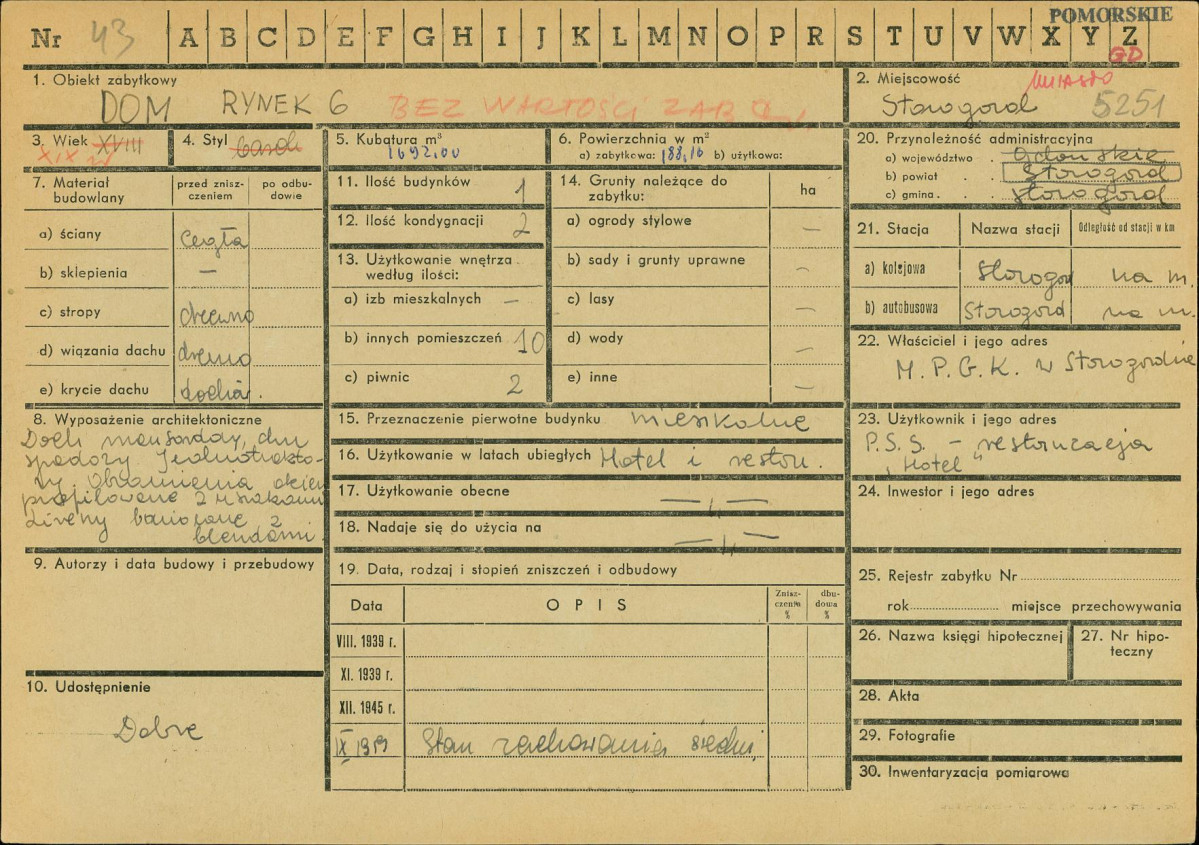 POMORSKIE
Nr 43 A B C D E F G H I J K L M N O P R S T U V W X Y Z
GD
1. Obiekt zabytkowy
DOM RYNEK 6 BEZ WARTOŚCI ZAB
2. Miejscowość MIASTO
Starogard 5251
3. Wiek XVIII
XIX
4. Styl barok
5. Kubatura m³
1692,00
6. Powierzchnia w m²
a) zabytkowa: 188,10 b) użytkowa:
7. Materiał budowlany
przed zniszczeniem
po odbudowie
a) ściany cegła
b) sklepienia —
c) stropy drewno
d) wiązania dachu drewno
e) krycie dachu dachów.
8. Wyposażenie architektoniczne
Dach mansardowy, dwu
spadowy
Obramienia okien
profilowane z uszakami
blendami.
9. Autorzy i data budowy i przebudowy
10. Udostępnienie
Dobre
11. Ilość budynków 1
12. Ilość kondygnacji 2
13. Użytkowanie wnętrza według ilości:
a) izb mieszkalnych —
b) innych pomieszczeń 10
c) piwnic 2
14. Grunty należące do zabytku:
ha
a) ogrody stylowe —
b) sady i grunty uprawne —
c) lasy —
d) wody —
e) inne —
15. Przeznaczenie pierwotne budynku mieszkalne
16. Użytkowanie w latach ubiegłych Hotel i restau.
17. Użytkowanie obecne —„—
18. Nadaje się do użycia na —„—
19. Data, rodzaj i stopień zniszczeń i odbudowy
Data
OPIS
Zniszczenia %
dbudowa %
VIII. 1939 r.
XI. 1939 r.
XII. 1945 r.
IX 1959 Stan zachowania średni
20. Przynależność administracyjna
a) województwo . Gdańskie
b) powiat . . Starogard
c) gmina . . . Starogard
21. Stacja
Nazwa stacji
Odległość od stacji w km
a) kolejowa Starogard na m.
b) autobusowa Starogard na m.
22. Właściciel i jego adres
M. P. G. K. w Starogardzie
23. Użytkownik i jego adres
P. S. S. – restauracja
„Hotel"
24. Inwestor i jego adres
25. Rejestr zabytku Nr
rok miejsce przechowywania
26. Nazwa księgi hipotecznej
27. Nr hipoteczny
28. Akta
29. Fotografie
30. Inwentaryzacja pomiarowa